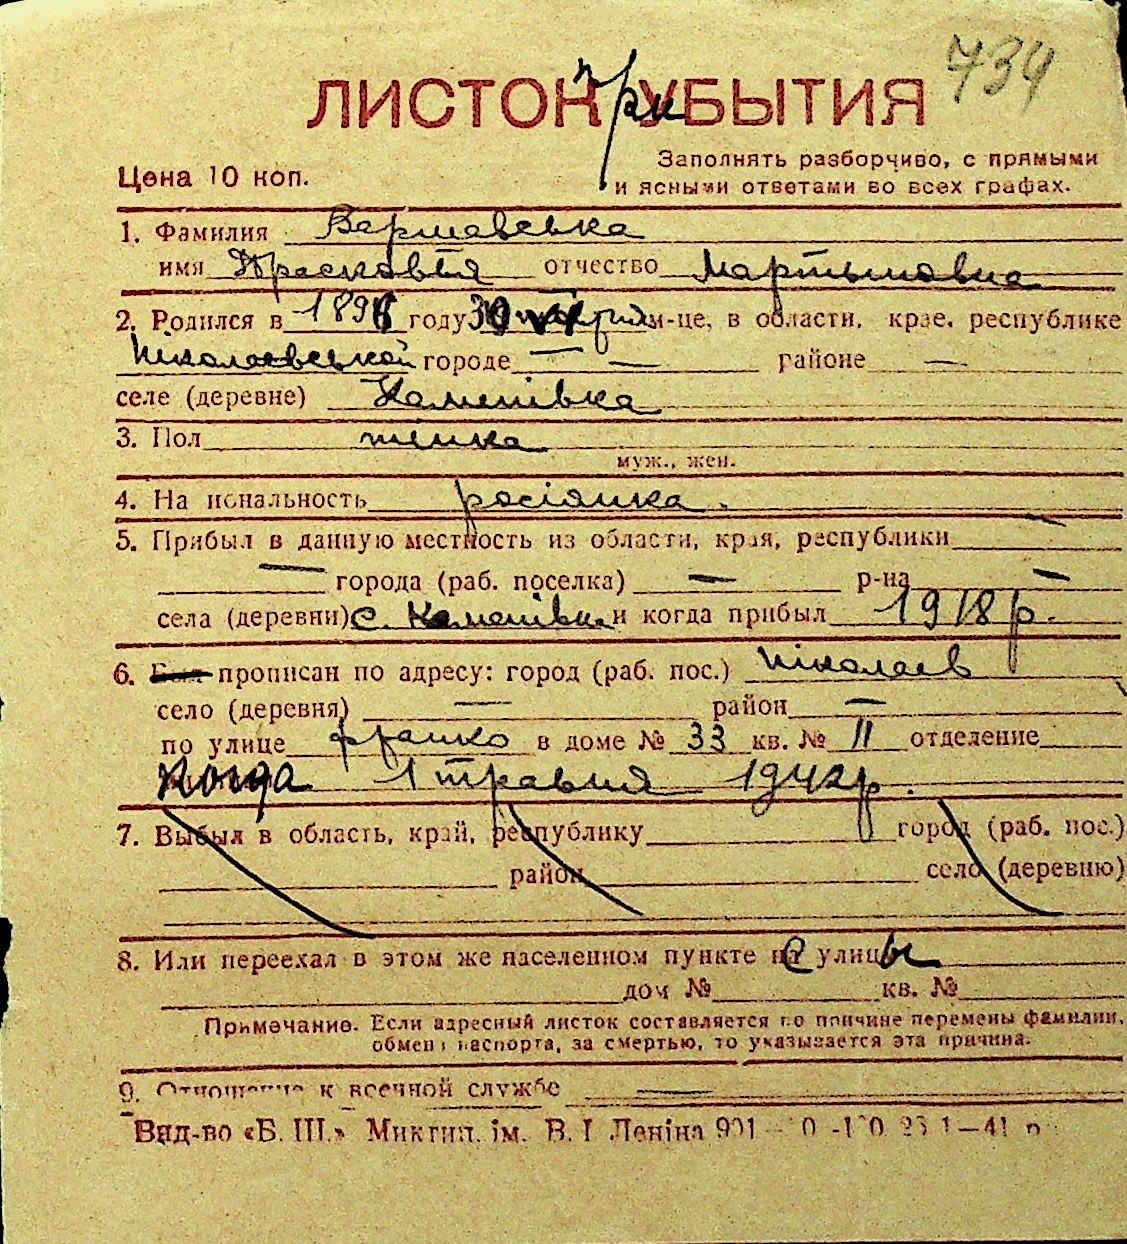 734
ЛИСТОК при УБЫТИЯ
Цена 10 коп.
Заполнять разборчиво, с прямыми
и ясными ответами во всех графах.
1. Фамилия Варшавська
имя Парасковія отчество Мартыновна
2. Родился в 1896 году 30 м-це, в области, крае, республике
Ніколаевськой городе — — районе —
селе (деревне) Каменівка
3. Пол жінка
муж., жен.
4. Национальность росіянка.
5. Прибыл в данную местность из области, края, республики —
— города (раб. поселка) — р-на —
села (деревни) с. Каменівки и когда прибыл 1918 р.
6. Был прописан по адресу: город (раб. пос.) Ніколаев
село (деревня) — район —
по улице Франко в доме № 33 кв. № 11 отделение
Когда 1 травня 1942 р.
7. Выбыл в область, край, республику город (раб. пос.)
район село (деревню)
8. Или переехал в этом же населенном пункте с улицы
дом № кв. №
Примечание. Если адресный листок составляется по причине перемены фамилии,
обмена паспорта, за смертью, то указывается эта причина.
9. Отношение к военной службе —
Вид-во «Б. Ш.» Миктип. ім. В. І Леніна